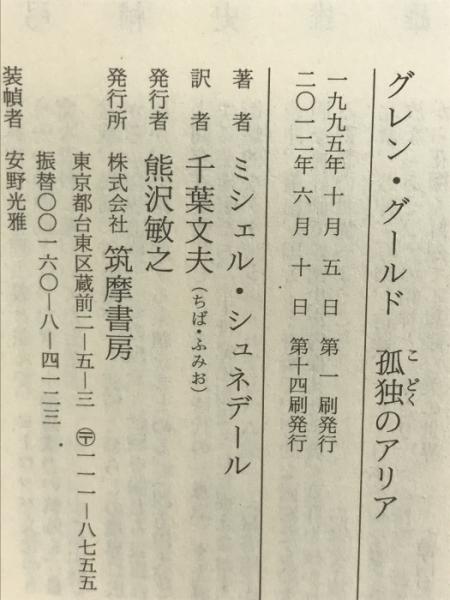 グレン・グールド 孤独のアリア
こどく
一九九五年十月五日 第一刷発行
二〇一二年六月十日 第十四刷発行
著者 ミシェル・シュネデール
訳者 千葉文夫(ちば・ふみお)
発行者 熊沢敏之
発行所 株式会社 筑摩書房
東京都台東区蔵前二―五―三 〒一一一―八七五五
振替〇〇一六〇―八―四一二三
装幀者 安野光雅